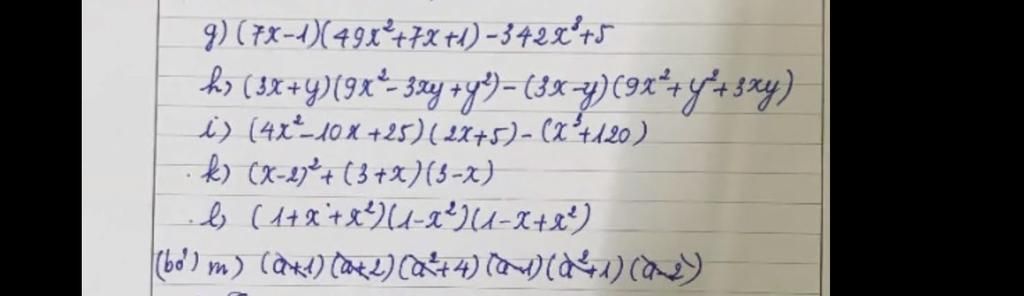 g) (7x-1)(49x²+7x+1)-342x³+5
h) (3x+y)(9x²-3xy+y²)-(3x-y)(9x²+y²+3xy)
i) (4x²-10x+25)(2x+5)-(x³+120)
k) (x-2)²+(3+x)(3-x)
l) (1+x+x²)(1-x²)(1-x+x²)
(bỏ) m) (a+1)(a+2)(a²+4)(a-1)(a²+1)(a-2)